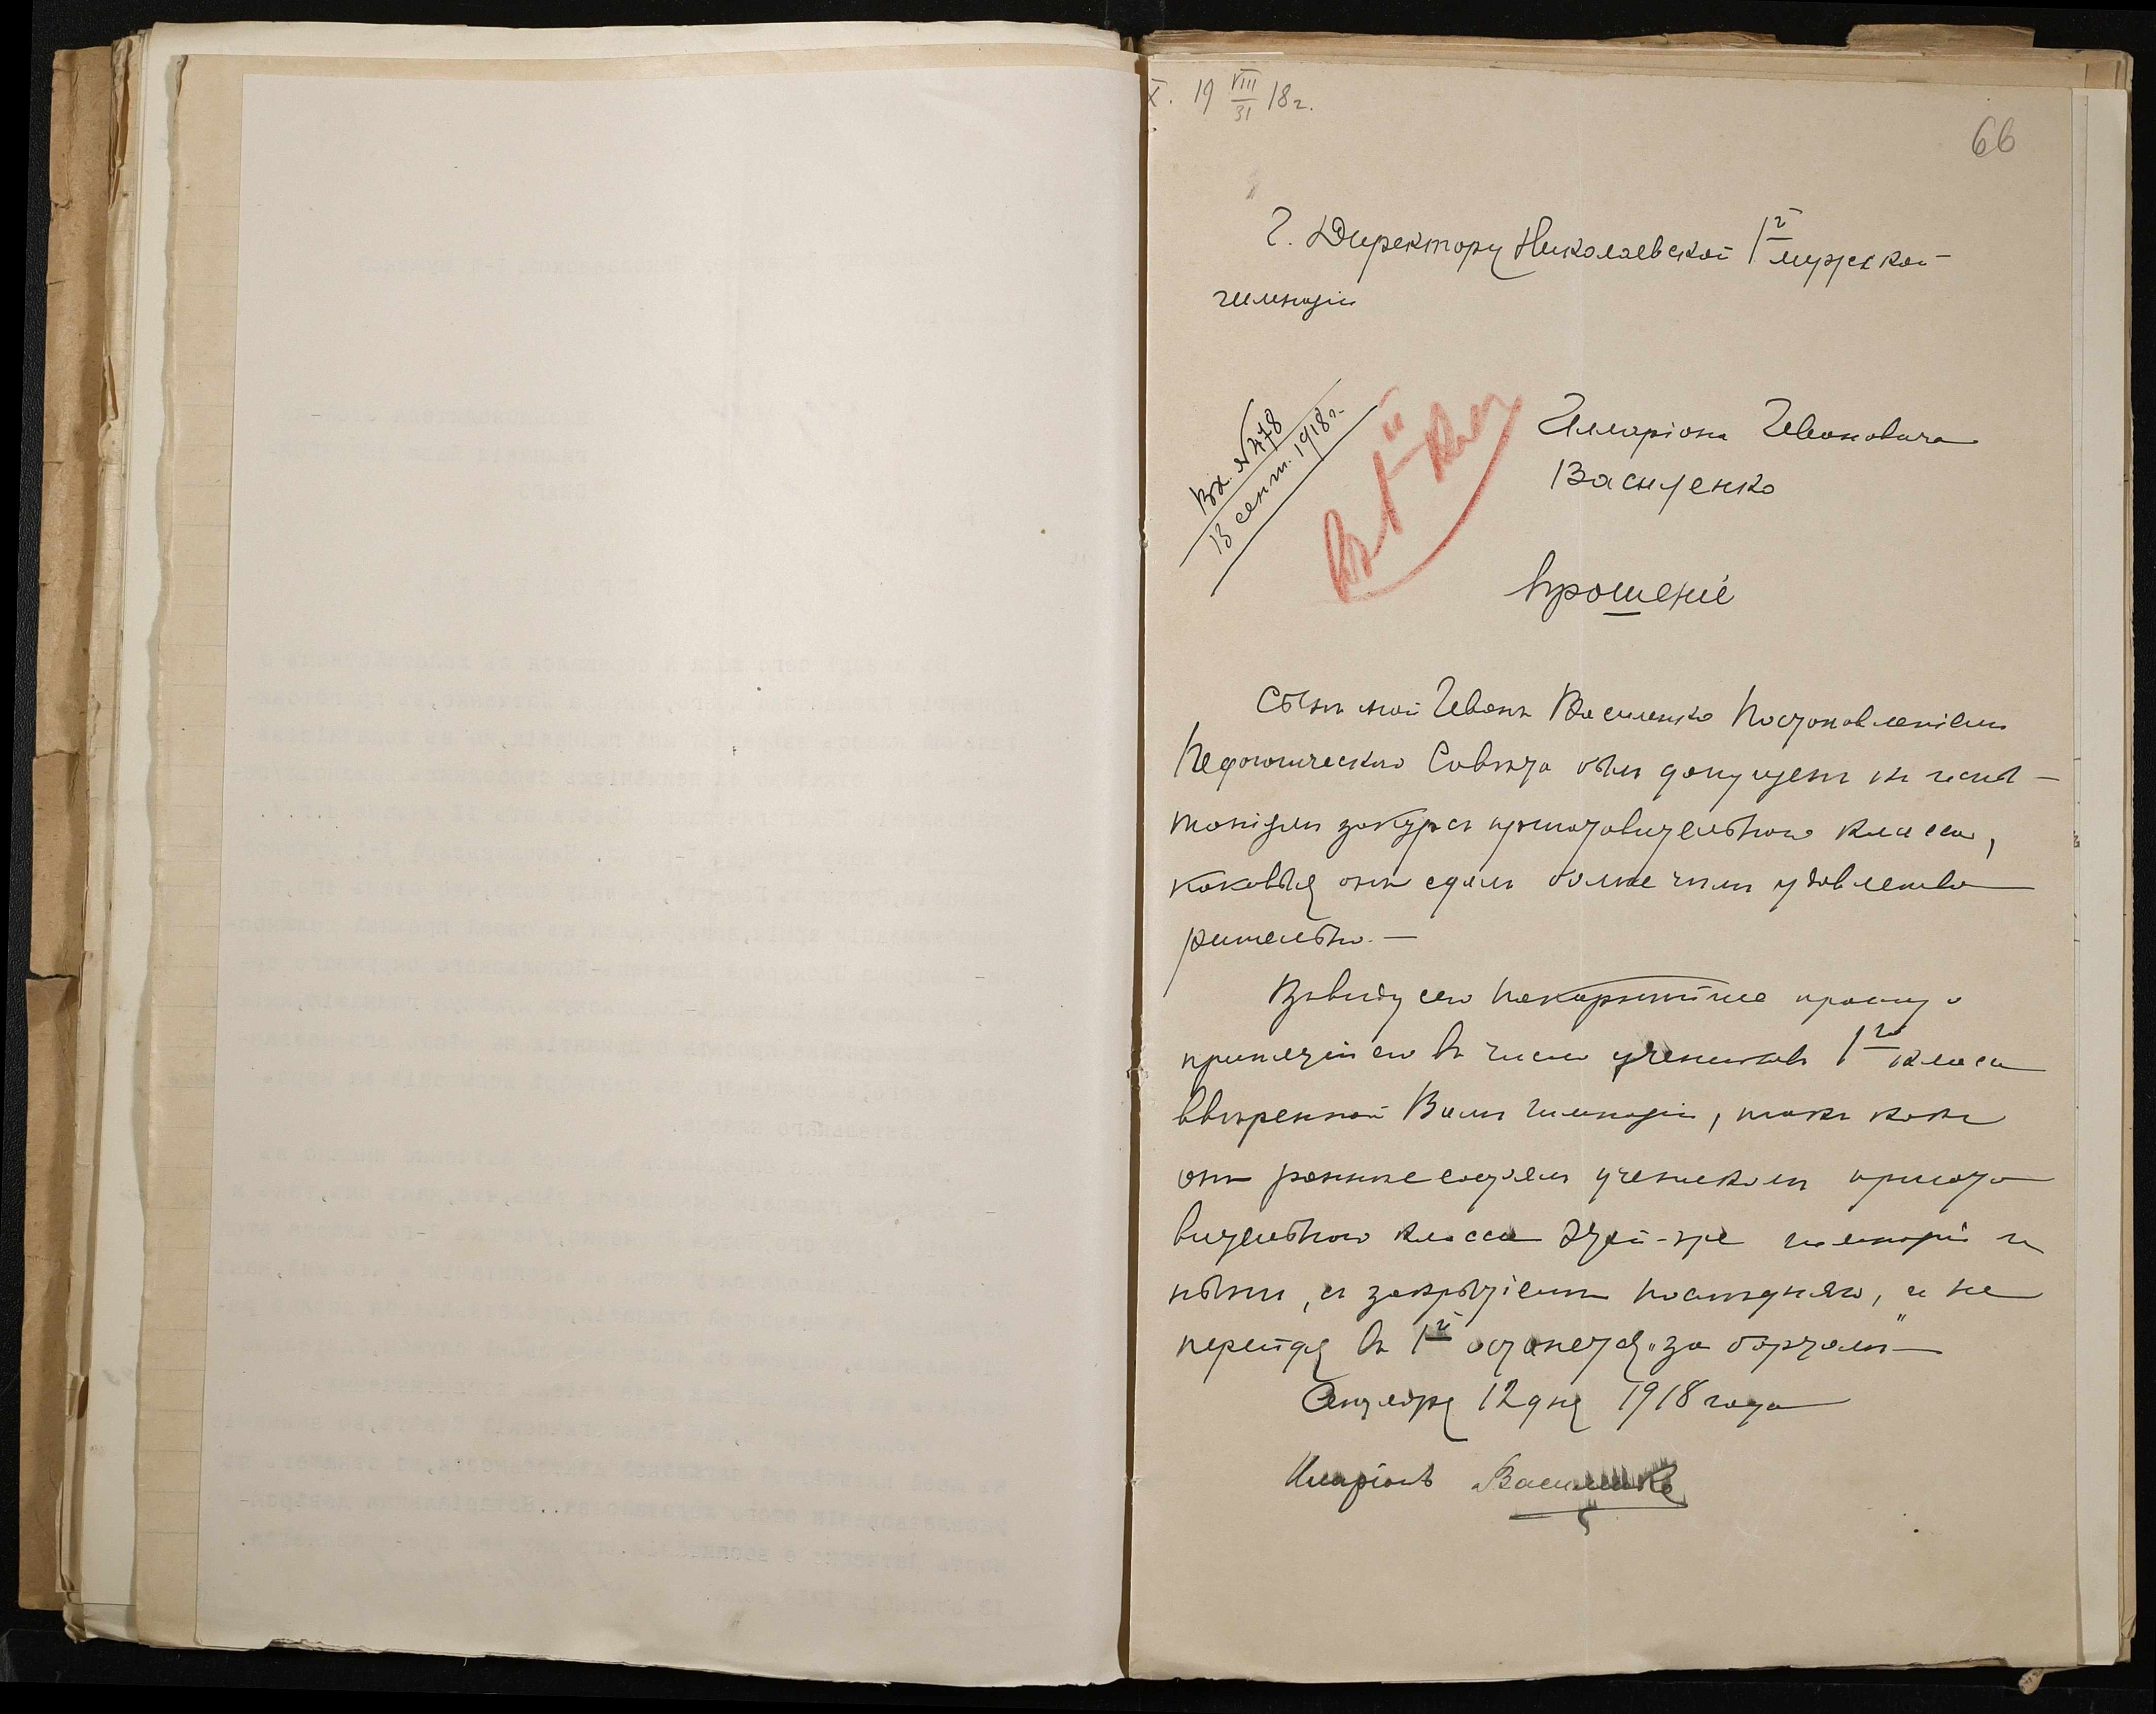 X. 19 VIII/31 18 г.
66
Г. Директору Николаевской 1й мужской
гимназіи
Вх. № 478
13 сент. 1918 г.
Въ 1й кл
Илларіона Ивановича
Василенко
Прошеніе
Сынъ мой Иванъ Василенко Постановленіемъ
Педагогическаго Совѣта былъ допущенъ къ испы-
таніямъ за курсъ приготовительнаго класса,
каковыя онъ сдалъ болѣе чѣмъ удовлетво
рительно. —
Ввиду сего покорнѣйше прошу о
принятіи его въ число учениковъ 1го класса
ввѣренной Вамъ гимназіи, такъ какъ
онъ раньше состоялъ ученикомъ пригото
вительнаго класса этой-же гимназіи и
нынѣ, съ закрытіемъ послѣдняго, и не
перейдя въ 1й останется „за бортомъ“
Сентября 12 дня 1918 года
Иларіонъ Василенко